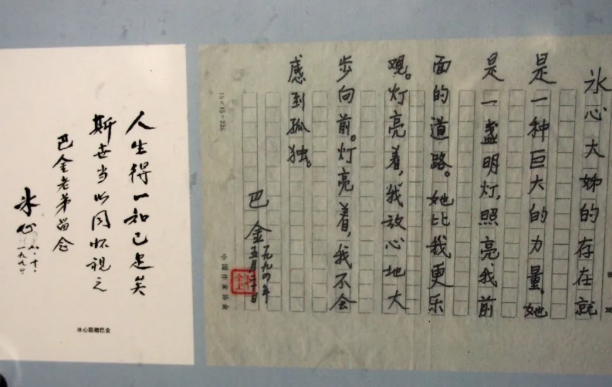 冰心大姊的存在就
是一种巨大的力量,她
是一盏明灯,照亮我前
面的道路。她比我更乐
观。灯亮着,我放心地大
步向前。灯亮着,我不会
感到孤独。
巴金
一九九四年
五月二十日
中国作家协会
人生得一知己足矣
斯世当以同怀视之
巴金老弟留念
冰心
冰心赠巴金